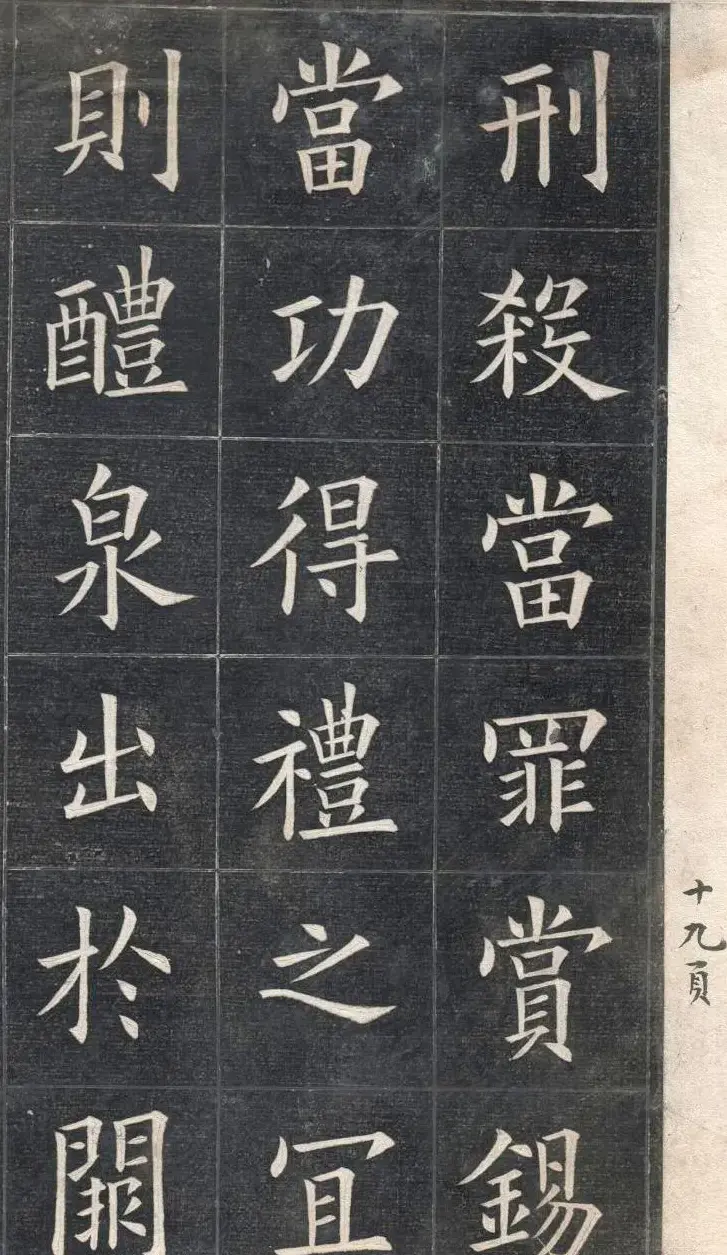 刑殺當罪賞錫
當功得禮之宜
則醴泉出於闕
十九頁